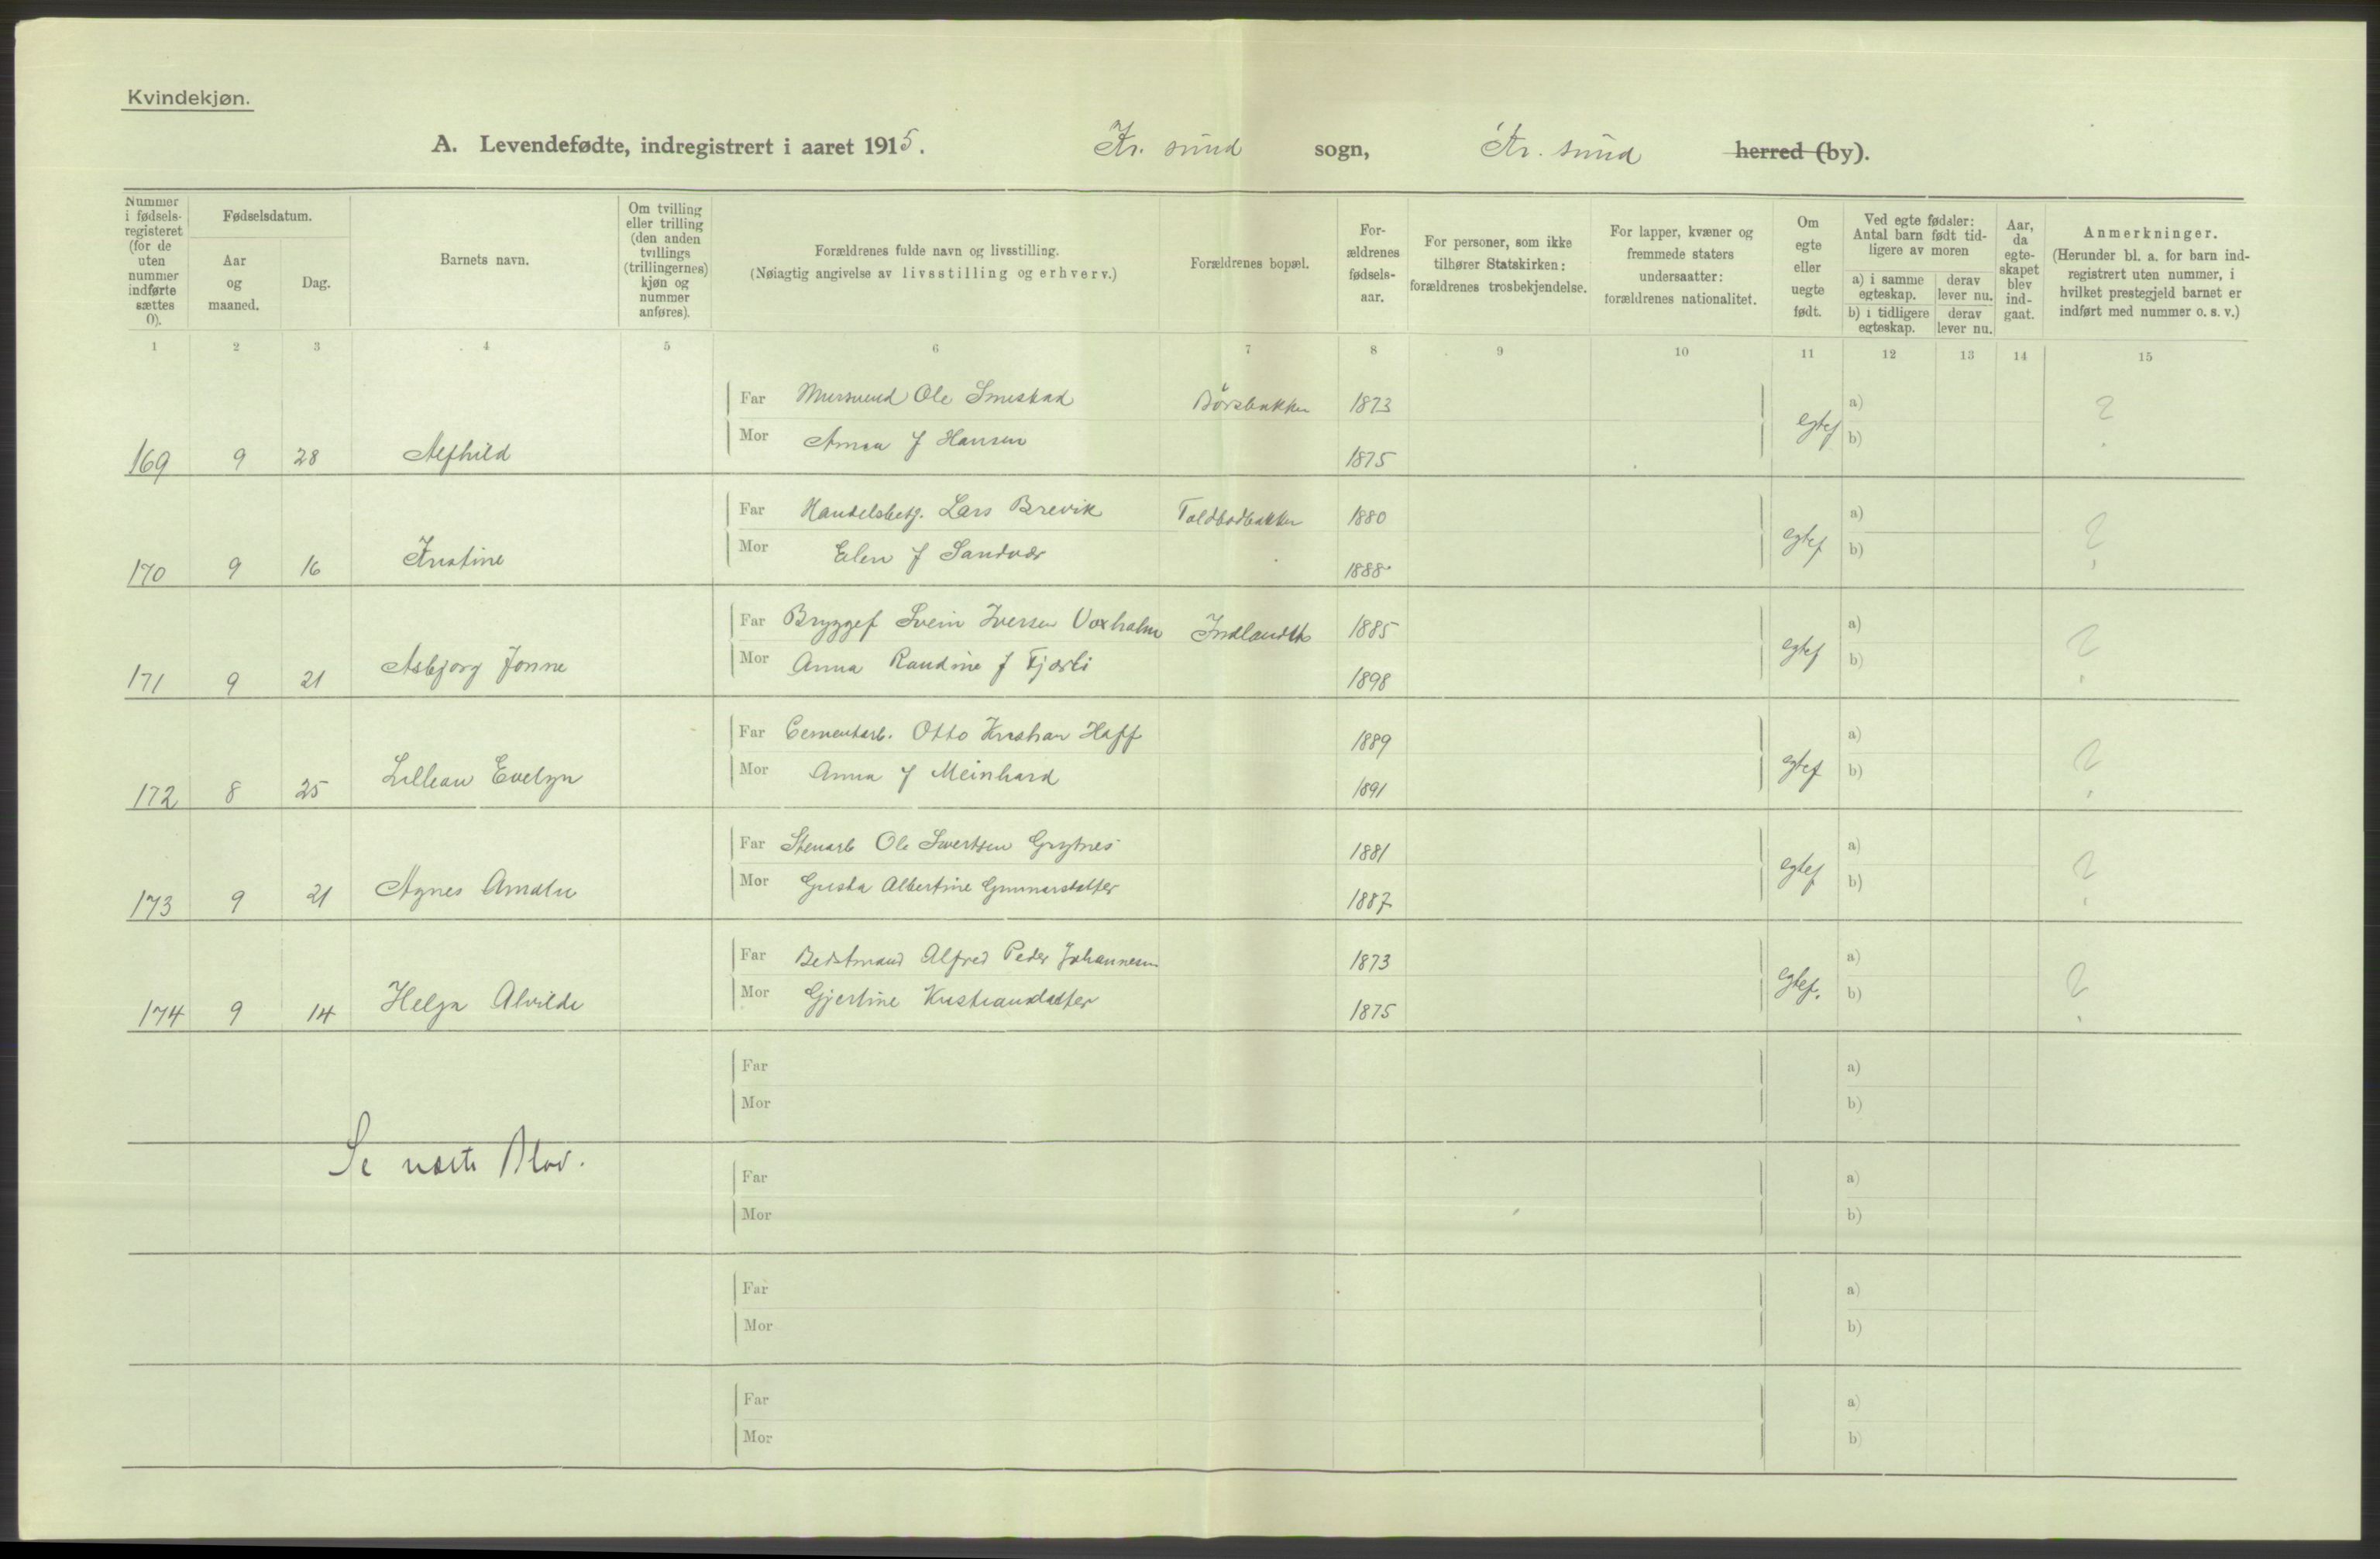 Kvindekjøn.
A. Levendefødte, indregistrert i aaret 1915. Kr. sund sogn, Kr. sund herred (by).
Nummer i fødsels-registeret (for de uten nummer indførte sættes 0).
Fødselsdatum.
Aar og maaned.
Dag.
Barnets navn.
Om tvilling eller trilling (den anden tvillings (trillingernes) kjøn og nummer anføres).
Forældrenes fulde navn og livsstilling.
(Nøiagtig angivelse av livsstilling og erhverv.)
Forældrenes bopæl.
For-ældrenes fødsels-aar.
For personer, som ikke tilhører Statskirken: forældrenes trosbekjendelse.
For lapper, kvæner og fremmede staters undersaatter: forældrenes nationalitet.
Om egte eller uegte født.
Ved egte fødsler: Antal barn født tid-ligere av moren
a) i samme egteskap.
derav lever nu.
b) i tidligere egteskap.
derav lever nu.
Aar, da egte-skapet blev ind-gaat.
Anmerkninger.
(Herunder bl. a. for barn ind-registrert uten nummer, i hvilket prestegjeld barnet er indført med nummer o. s. v.)
1 2 3 4 5 6 7 8 9 10 11 12 13 14 15
Far Ole Smestad Børsbakken 1873 a) ?
Mor Anna f Hansen 1875 egtef b)
169 9 28 Alfhild
Far Handelsbetj. Lars Brevik Toldbodbakken 1880 a) ?
Mor Elen f Sandvær 1888 egtef b)
170 9 16 Kristine
Far Bryggef Svein Iversen Voxholm Indlandet 1885 a) ?
Mor Anna Randine f Fjærli 1898 egtef b)
171 9 21 Asbjørg Jonne
Far Cementarb. Otto Kristian Hoff 1889 a) ?
Mor Anna f Meinhard 1891 egtef b)
172 8 25 Lillean Evelyn
Far Stenarb Ole Sivertsen Grytnes 1881 a) ?
Mor Gusta Albertine Gunnarsdatter 1887 egtef b)
173 9 21 Agnes
Far Bedstmand Alfred Peder Johannesen 1873 a) ?
Mor Gjertine Kristiansdatter 1875 egtef. b)
174 9 14 Helga Alvilde
Far a)
Mor b)
Se næste Blad.
Far a)
Mor b)
Far a)
Mor b)
Far a)
Mor b)